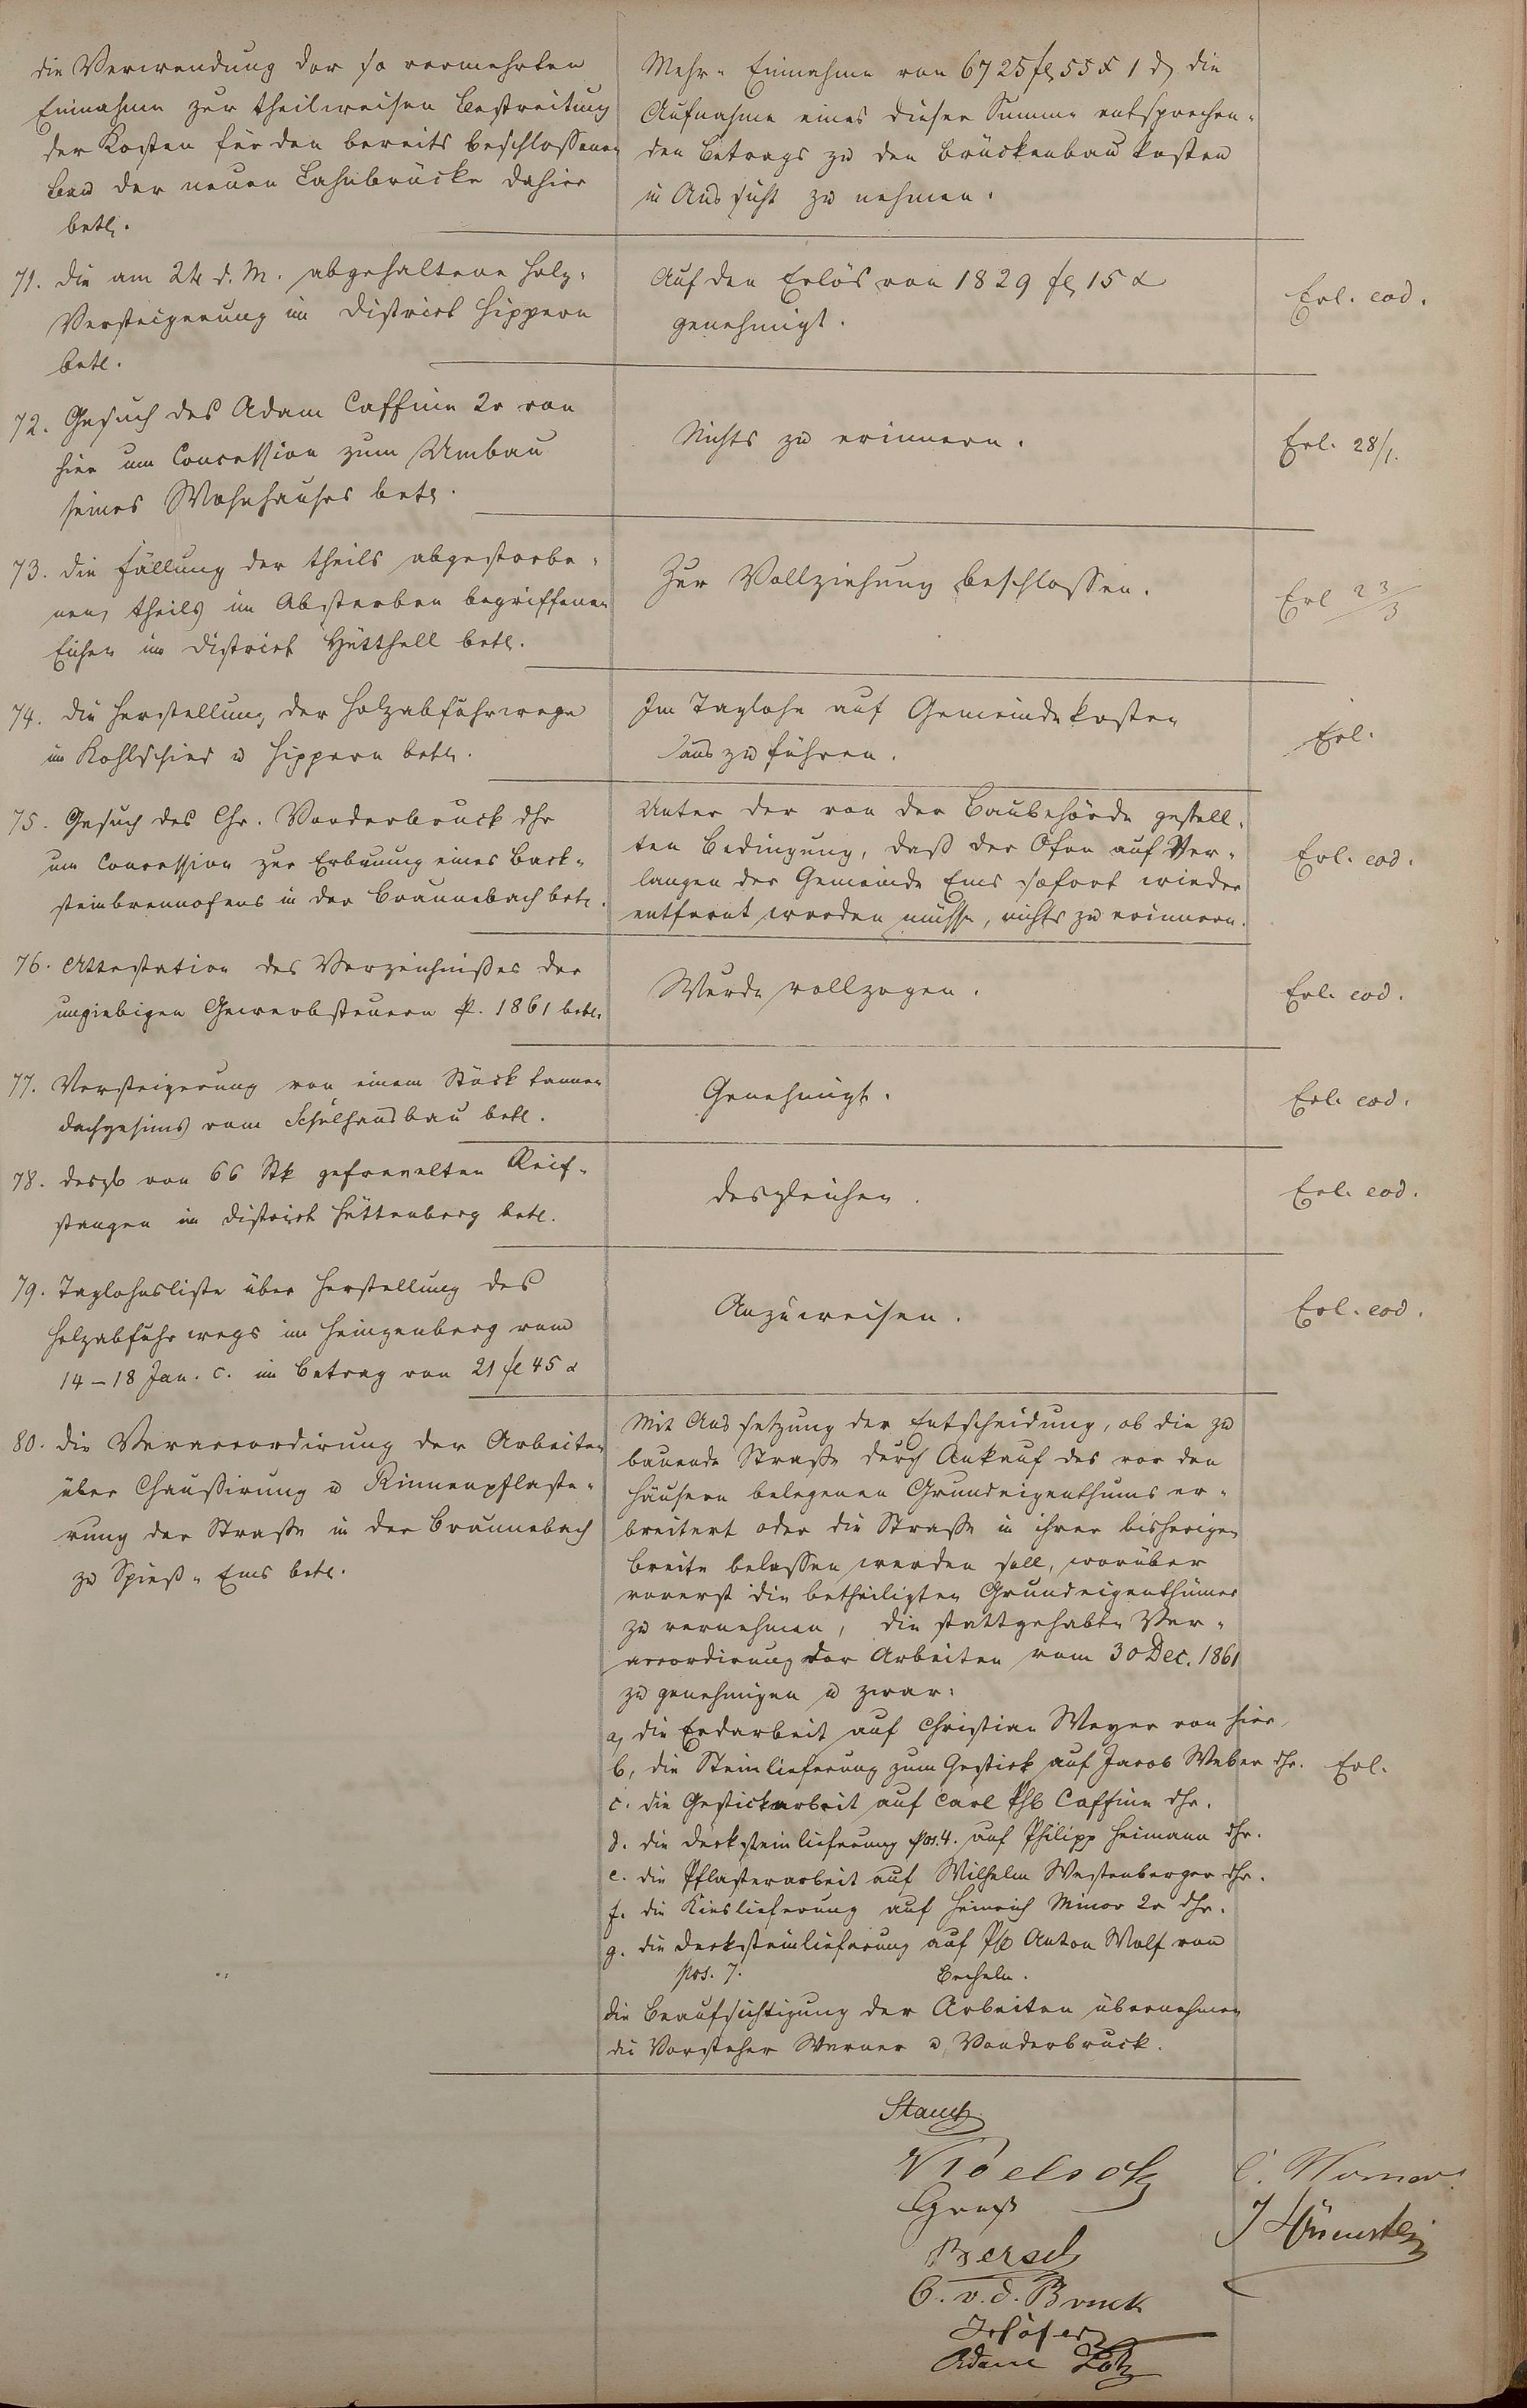 die Verwendung der so vermehrten
Einnahme zur theilweisen Bestreitung
der Kosten für den bereits beschlossenen
Bau der neuen Lahnbrücke dahier
betr.
Mehr-Einnahme von 6725 fl 55 x 1 d, die
Aufnahme eines dieser Summe entsprechen-
den Betrags zu den Brückenbaukosten
in Aussicht zu nehmen.
71. die am 24 d. M. abgehaltene Holz-
Versteigerung im District Hippern
betr.
Auf den Erlös von 1829 fl 15 x
genehmigt.
Erl. eod.
72. Gesuch des Adam Caffine 2r von
hier um Concession zum Umbau
seines Wohnhauses betr.
Nichts zu erinnern.
Erl. 28/1.
73. die Fällung der theils abgestorbe-
nen, theils im Absterben begriffenen
Eichen im District Hütthell betr.
Zur Vollziehung beschlossen.
Erl 23/3
74. die Herstellung der Holzabfuhrwege
im Kohlschied u Hippern betr.
Im Taglohn auf Gemeindekosten
auszuführen.
Erl.
75. Gesuch des Chr. Vonderbruck dhr
um Concession zur Erbauung eines Back-
steinbrennofens in der Braunebach betr.
Unter der von der Baubehörde gestell-
ten Bedingung, daß der Ofen auf Ver-
langen der Gemeinde Ems sofort wieder
entfernt werden müsse, nichts zu erinnern.
Erl. eod.
76. Attestation des Verzeichnißes der
ungiebigen Gewerbsteuern p. 1861 betr.
Wurde vollzogen.
Erl. eod.
77. Versteigerung von einem Stück tannen
Dachgesims vom Schulhausbau betr.
Genehmigt.
Erl. eod.
78. desgl von 66 Stk gefrevelten Reif-
stangen im District Hüttenberg betr.
desgleichen.
Erl. eod.
79. Taglohnsliste über Herstellung des
Holzabfuhrwegs im Heingenberg vom
14-18 Jan. c. im Betrag von 21 fl 45 x
Anzuweisen.
Erl. eod.
80. die Veraccordirung der Arbeiten
über Chaussirung u Rinnenpflaste-
rung der Straße in der Braunebach
zu Spieß-Ems betr.
Mit Aussetzung der Entscheidung, ob die zu
bauende Straße durch Ankauf des vor den
Häusern belegenen Grundeigenthums er-
breitert oder die Straße in ihrer bisherigen
Breite belassen werden soll, worüber
vorerst die betheiligten Grundeigenthümer
zu vernehmen, die stattgehabte Ver-
accordirung der Arbeiten vom 30 Dec. 1861
zu genehmigen u zwar:
a, die Erdarbeit auf Christian Meyer von hier,
b, die Steinlieferung zum Gestick auf Jacob Weber dhr.
Erl.
c. die Gestickarbeit auf Carl Phl Caffine dhr.
d. die Decksteinlieferung pos. 4. auf Philipp Heimann dhr.
e. die Pflasterarbeit auf Wilhelm Westenberger dhr.
f. die Kieslieferung auf Heinrich Minor 2r dhr.
g. die Decksteinlieferung auf Ph Anton Wolf von
pos. 7. Becheln.
die Beaufsichtigung der Arbeiten übernehmen
die Vorsteher Werner u Vonderbruck.
Bersch
C. v. d. Bruck
Adam